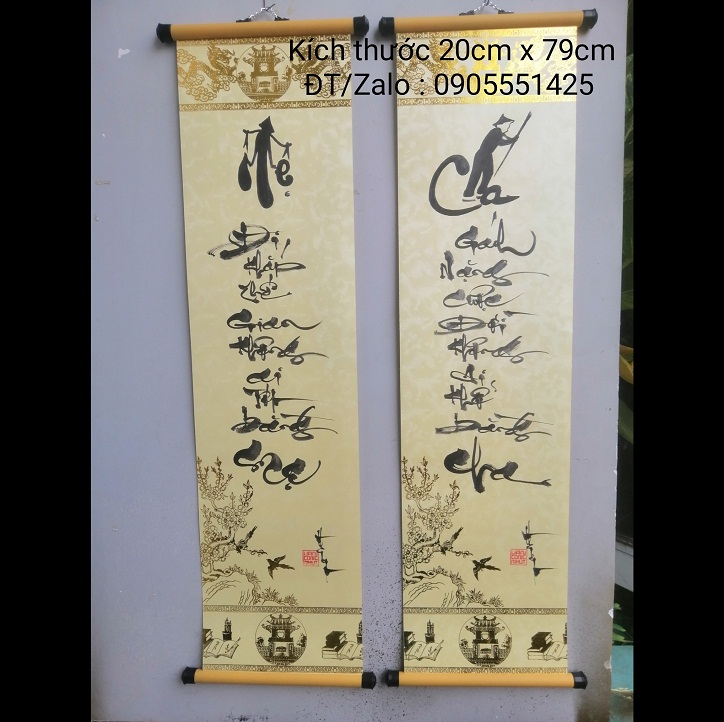 Kích thước 20cm x 79cm
ĐT/Zalo : 0905551425
Mẹ
Đi
khắp
thế
Gian
không
ai
Tốt
bằng
Mẹ
Cha
Gánh
Nặng
cuộc
Đời
không
ai
khổ
bằng
cha